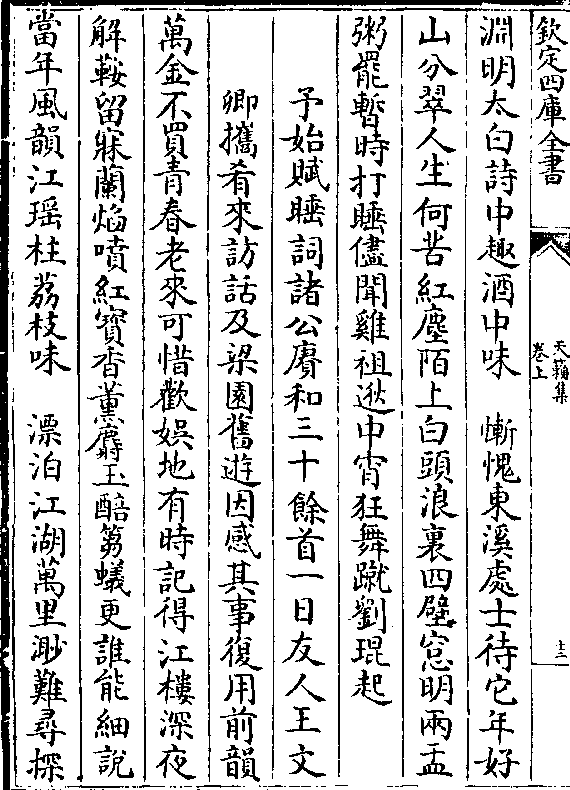 欽定四庫全書
天籟集
卷上
十三
淵明太白詩中趣酒中味　慚愧東溪處士待它年好
山分翠人生何苦紅塵陌上白頭浪裏四壁窓明兩盂
粥罷暫時打睡儘聞雞祖逖中宵狂舞蹴劉琨起
予始賦睡詞諸公賡和三十餘首一日友人王文
卿攜肴來訪話及梁園舊遊因感其事復用前韻
萬金不買青春老來可惜歡娛地有時記得江樓深夜
解鞍留寐蘭焰噴紅寳香薰麝玉醅篘蟻更誰能細說
當年風韻江瑶柱荔枝味　漂泊江湖萬里渺難尋探